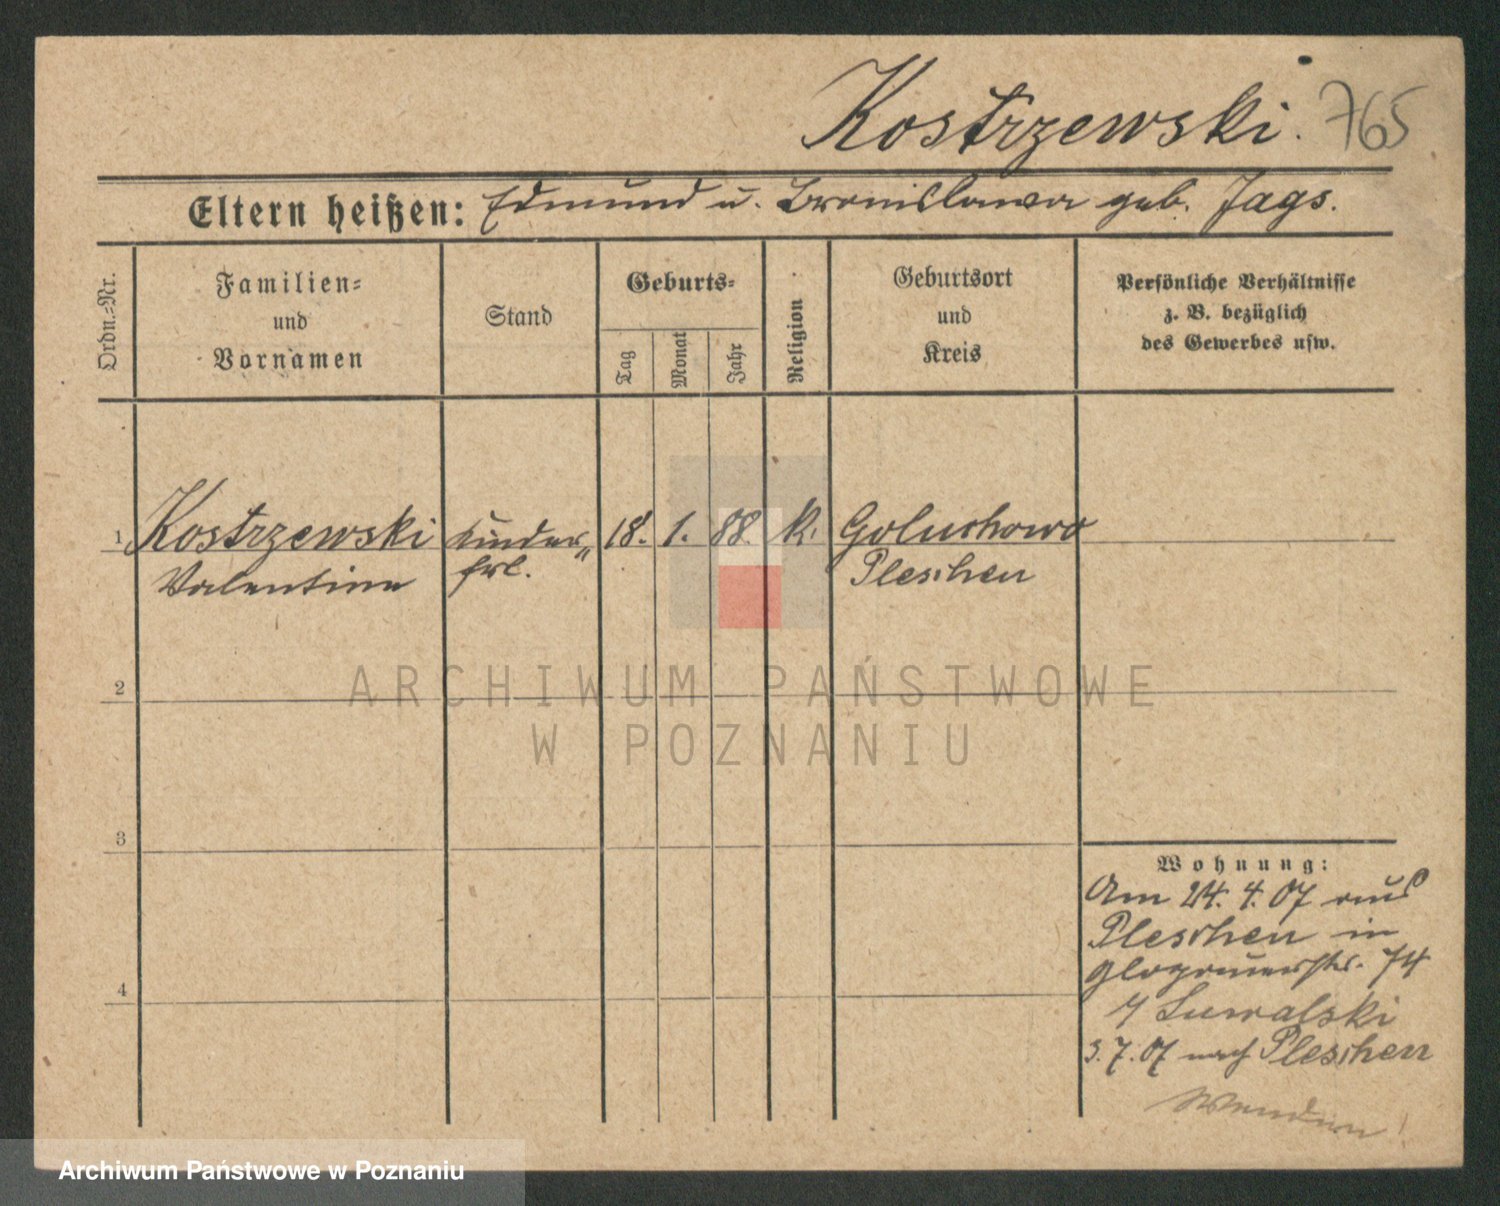 Kostrzewski. 765
Eltern heißen: Edmund u. Bronislawa geb. Jags.
Ordn.-Nr.
Familien-
und
Vornamen
Stand
Geburts-
Tag
Monat
Jahr
Religion
Geburtsort
und
Kreis
Persönliche Verhältnisse
z. B. bezüglich
des Gewerbes usw.
1 Kostrzewski Kinder- 18. 1. 88. k. Goluchowo
Valentine frl. Pleschen
2
ARCHIWUM PAŃSTWOWE
W POZNANIU
3
4
Wohnung:
Am 24. 4. 07 aus
Pleschen in
Glogauerstr. 74
Suwalski
3. 7. 07 nach Pleschen
Wenden!
Archiwum Państwowe w Poznaniu